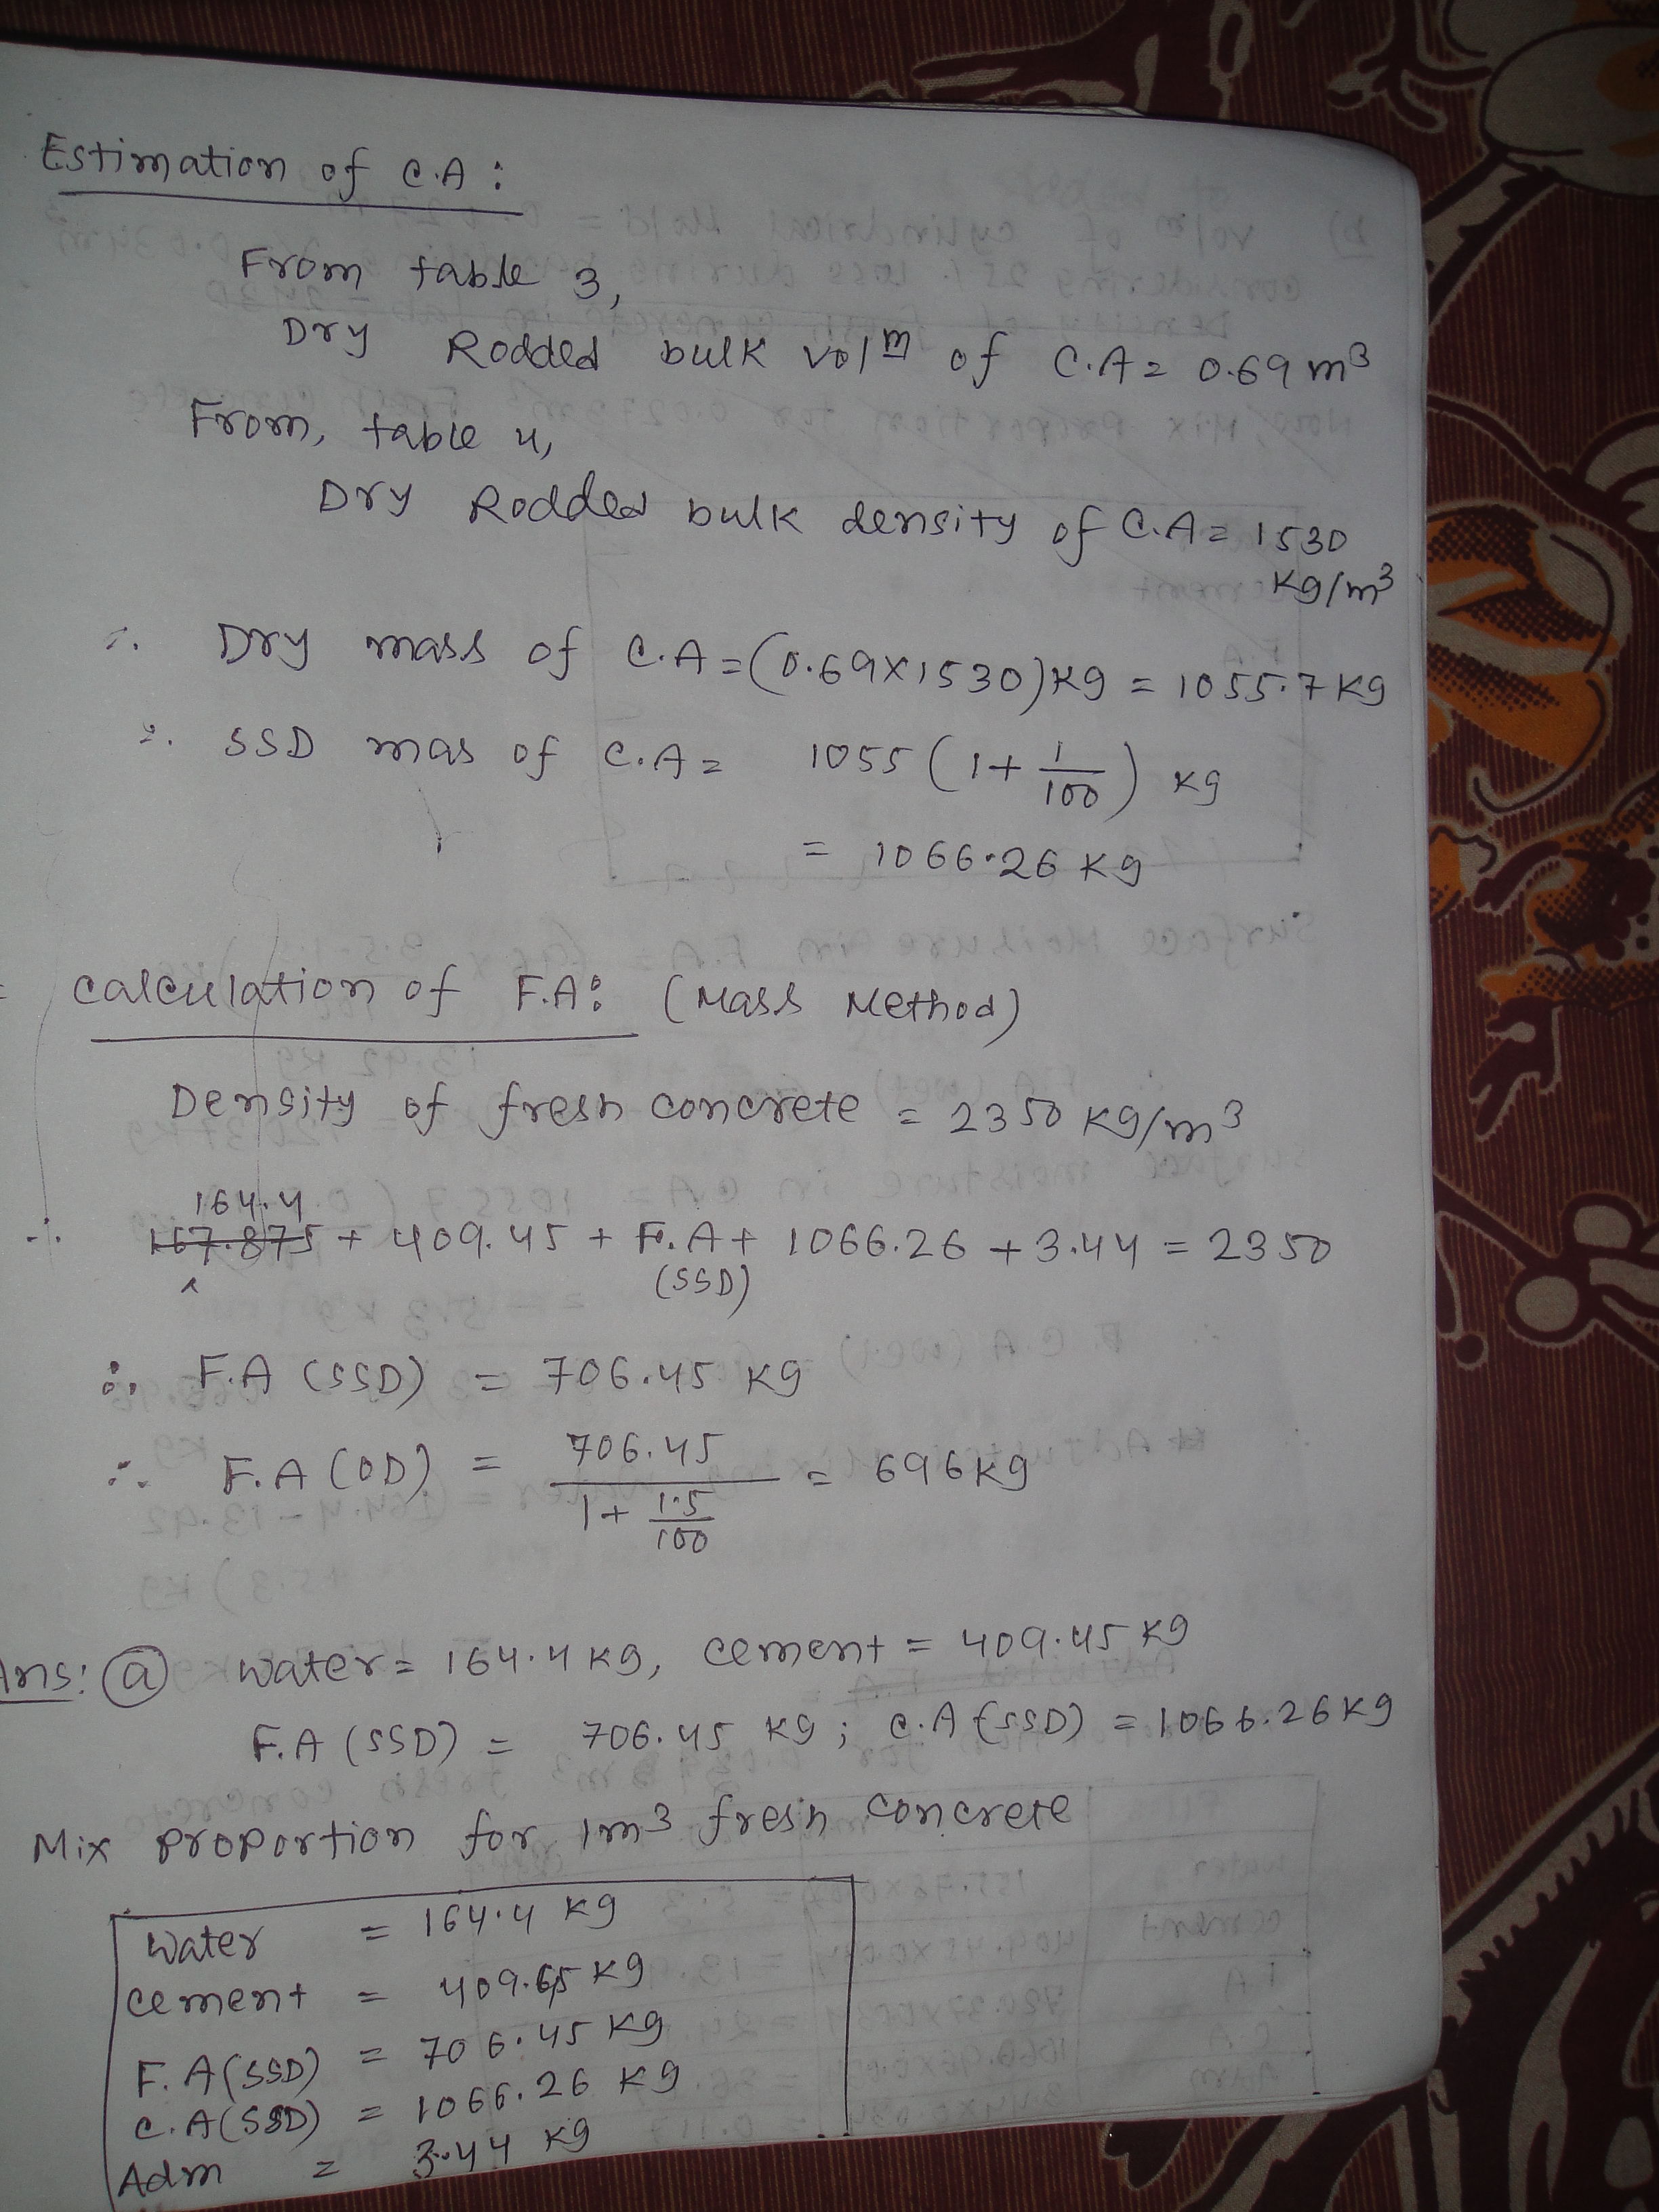 Estimation of C.A :
From table 3,
Dry Rodded bulk volm of C.A = 0.69 m³
From, table 4,
Dry Rodded bulk density of C.A = 1530
Kg/m³
∴ Dry mass of C.A = (0.69×1530) Kg = 1055.7 Kg
∴ SSD mas of C.A = 1055 (1 + 1/100) Kg
= 1066.26 Kg
Calculation of F.A: (Mass Method)
Density of fresh concrete = 2350 Kg/m³
164.4
∴ 167.875 + 409.45 + F.A + 1066.26 + 3.44 = 2350
(SSD)
∴ F.A (SSD) = 706.45 Kg
∴ F.A (OD) = 706.45 / (1 + 1.5/100) = 696 Kg
Ans: (a) Water = 164.4 Kg, Cement = 409.45 Kg
F.A (SSD) = 706.45 Kg ; C.A (SSD) = 1066.26 Kg
Mix Proportion for 1m³ fresh concrete
Water = 164.4 Kg
Cement = 409.65 Kg
F.A (SSD) = 706.45 Kg
C.A (SSD) = 1066.26 Kg
Adm = 3.44 Kg